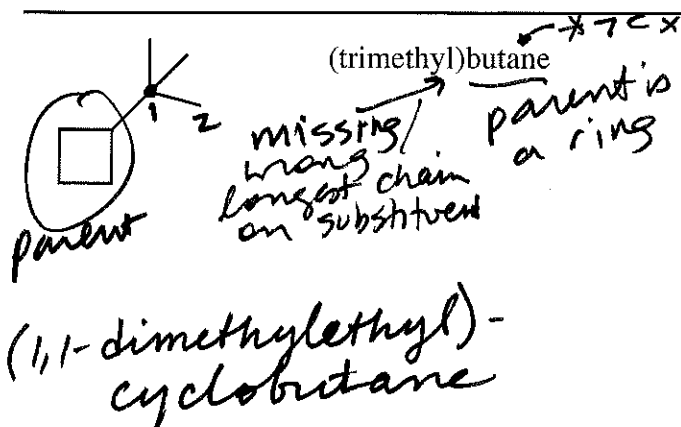 (trimethyl)butane
1
2
missing/
wrong
longest chain
on substituent
parent is
a ring
parent
(1,1-dimethylethyl)-
cyclobutane